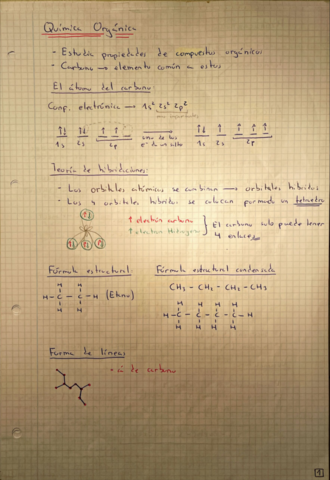 Química Orgánica
- Estudia propiedades de compuestos orgánicos
- Carbono → elemento común a estos
El átomo del carbono
Conf. electrónica → 1s² 2s² 2p²
1s 2s 2p
1s 2s 2p
Teoría de hibridaciones:
- Los orbitales atómicos se combinan → orbitales híbridos
- Los 4 orbitales híbridos se colocan formando un tetraedro
↑ electrón carbono
↑ electrón Hidrógeno
El carbono solo puede tener 4 enlaces
Fórmula estructural
Fórmula estructural condensada
H H
H-C-C-H (Etano)
H H
CH₃ - CH₂ - CH₂ - CH₃
H H H H
H-C-C-C-C-H
H H H H
Forma de líneas
de carbono
1